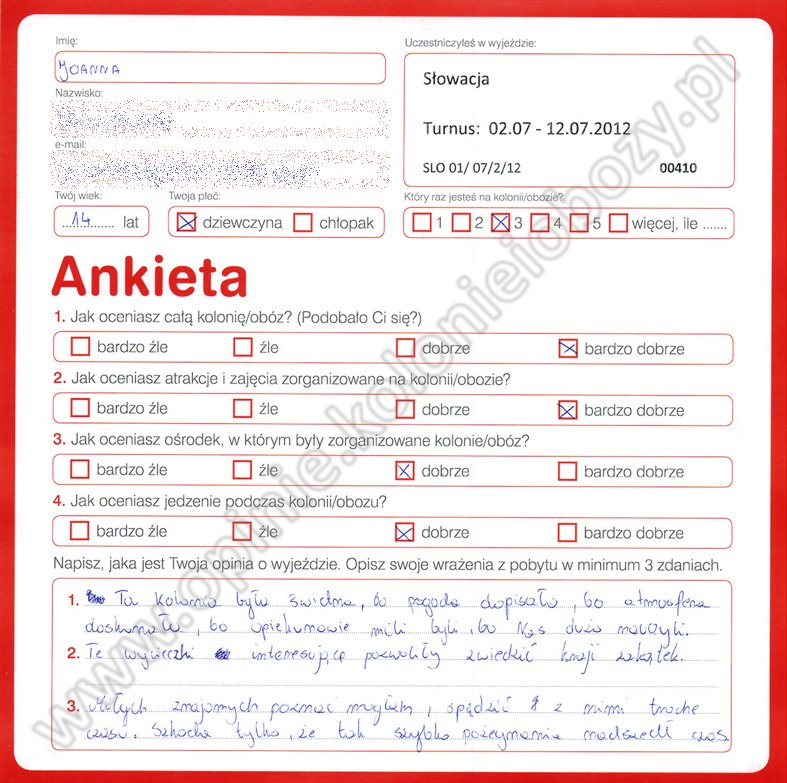 Imię:
Uczestniczyłeś w wyjeździe:
JOANNA
Słowacja
Nazwisko:
Turnus: 02.07 - 12.07.2012
e-mail:
SLO 01/ 07/2/12 00410
Twój wiek: Twoja płeć: Który raz jesteś na kolonii/obozie?
14 lat dziewczyna chłopak 1 2 3 4 5 więcej, ile .......
Ankieta
1. Jak oceniasz całą kolonię/obóz? (Podobało Ci się?)
bardzo źle źle dobrze bardzo dobrze
2. Jak oceniasz atrakcje i zajęcia zorganizowane na kolonii/obozie?
bardzo źle źle dobrze bardzo dobrze
3. Jak oceniasz ośrodek, w którym były zorganizowane kolonie/obóz?
bardzo źle źle dobrze bardzo dobrze
4. Jak oceniasz jedzenie podczas kolonii/obozu?
bardzo źle źle dobrze bardzo dobrze
Napisz, jaka jest Twoja opinia o wyjeździe. Opisz swoje wrażenia z pobytu w minimum 3 zdaniach.
1. Ta kolonia była świetna, bo pogoda dopisała, bo atmosfera
doskonała, bo opiekunowie mili byli, bo Nas dużo nauczyli.
2. Te wycieczki interesujące pozwoliły zwiedzić kraji zakątek.
3. Miłych znajomych poznać mogłam, spędzić z nimi trochę
czasu. Szkoda tylko, że tak szybko pożegnania nadszedł czas.
www.opinie.kolonieiobozy.pl